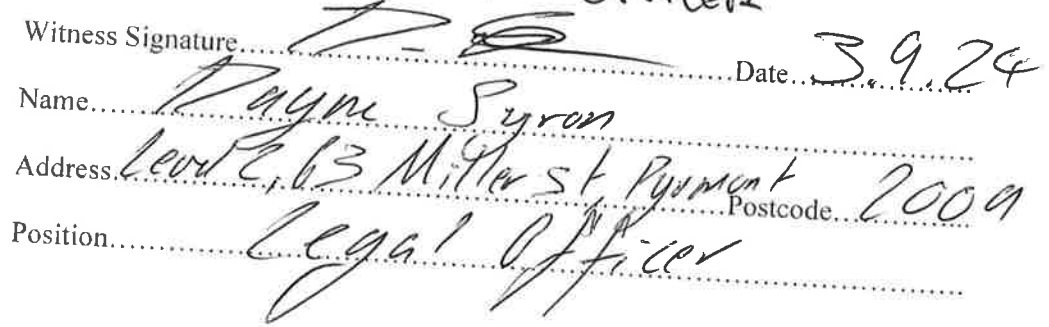 Witness Signature.......... Date..3.9.24
Name....Dayne Syron
Address.Level 2, 63 Miller St, Pyrmont Postcode...2009
Position..........Legal Officer